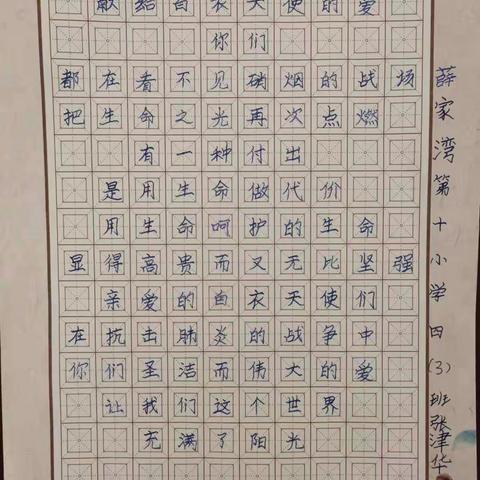 献给白衣天使的爱
你们
都在看不见硝烟的战场
把生命之光再次点燃
有一种付出
是用生命做代价
用生命呵护的生命
显得高贵而又无比坚强
亲爱的白衣天使们
在抗击肺炎的战争中
你们圣洁而伟大的爱
让我们这个世界
充满了阳光
薛家湾第十小学四(3)班张津华